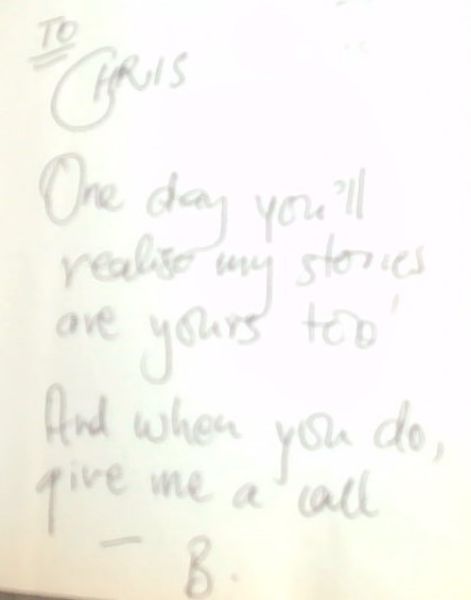 TO
CHRIS
One day you'll
realise my stories
are yours too'
And when you do,
give me a call
— B.